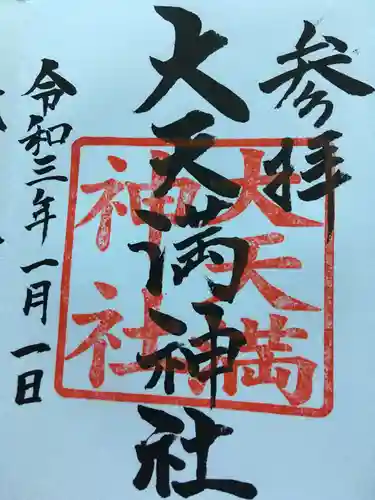 参拝
大天満神社
大天満
神社
令和三年一月一日